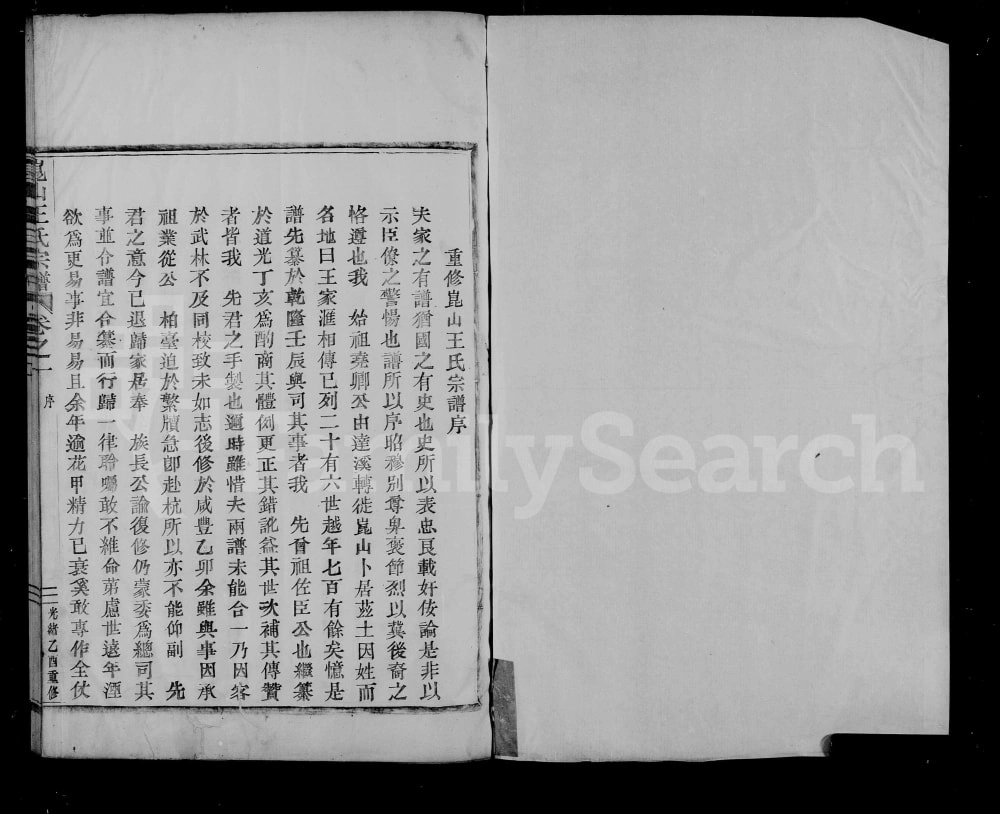 重修崑山王氏宗譜序
夫家之有譜猶國之有史也史所以表忠良載奸佞論是非以
示臣僚之警惕也譜所以序昭穆別尊卑褒節烈以冀後裔之
恪遵也我 始祖堯卿公由達溪轉徙崑山卜居茲土因姓而
名地曰王家滙相傳已列二十有六世越年七百有餘矣憶是
譜先纂於乾隆壬辰與司其事者我 先曾祖佐臣公也繼纂
於道光丁亥為酌商其體例更正其錯訛益其世次補其傳贊
者皆我 先君之手製也邇時雖惜夫兩譜未能合一乃因客
於武林不及同校致未如志後修於咸豐乙卯余雖與事因承
祖業從公 柏臺迫於繁牘急卽赴杭所以亦不能仰副 先
君之意今已退歸家居奉 族長公諭復修仍蒙委為總司其
事並介譜宜合纂而行歸一律聆囑敢不維命第慮世遠年湮
欲為更易事非易易且余年逾花甲精力已衰奚敢專作全仗
崑山王氏宗譜 卷之一 序 一 光緒乙酉重修
FamilySearch